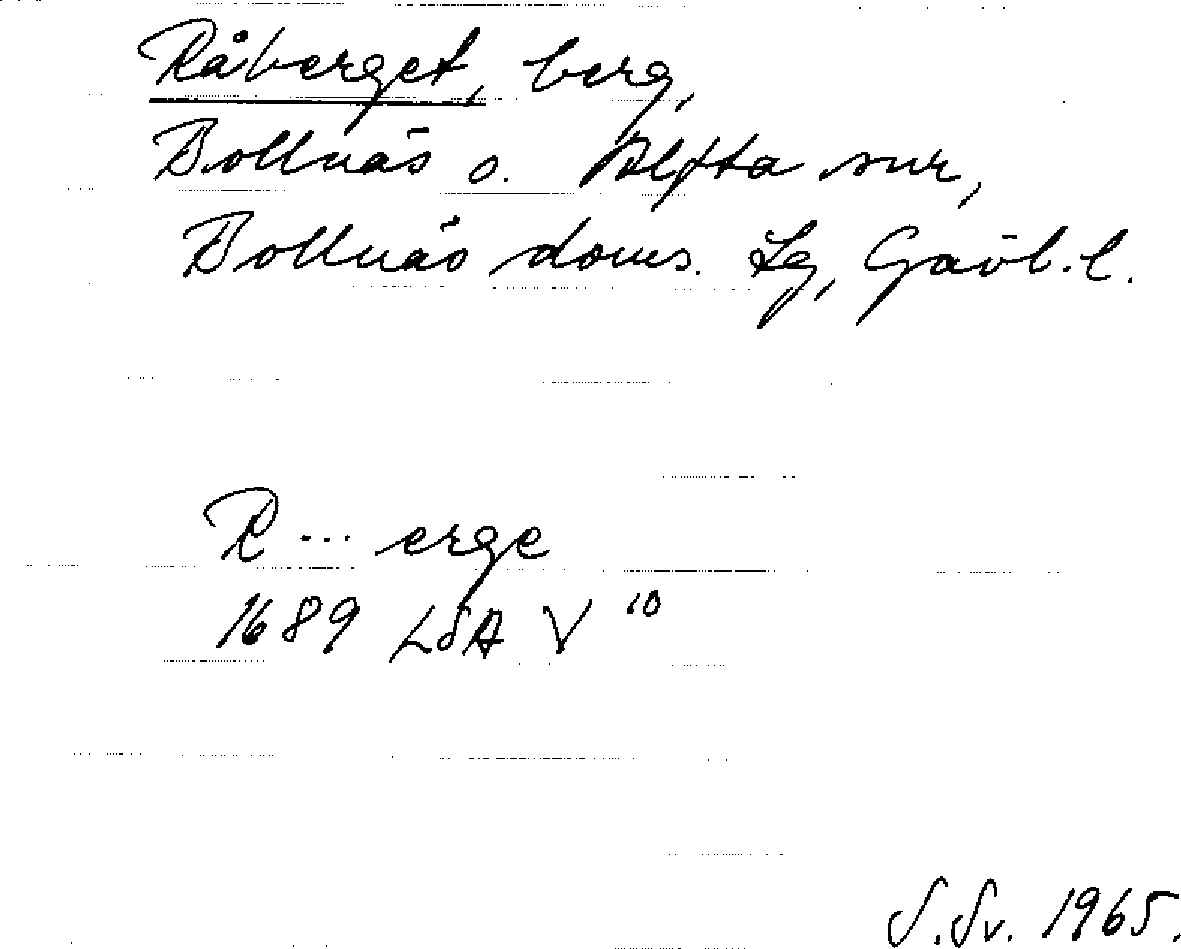 Råberget, berg,
Bollnäs o. Alfta snr,
Bollnäs doms. Lg, Gävb. l.
R... erge
1689 LSA V 10
S. Sv. 1965.